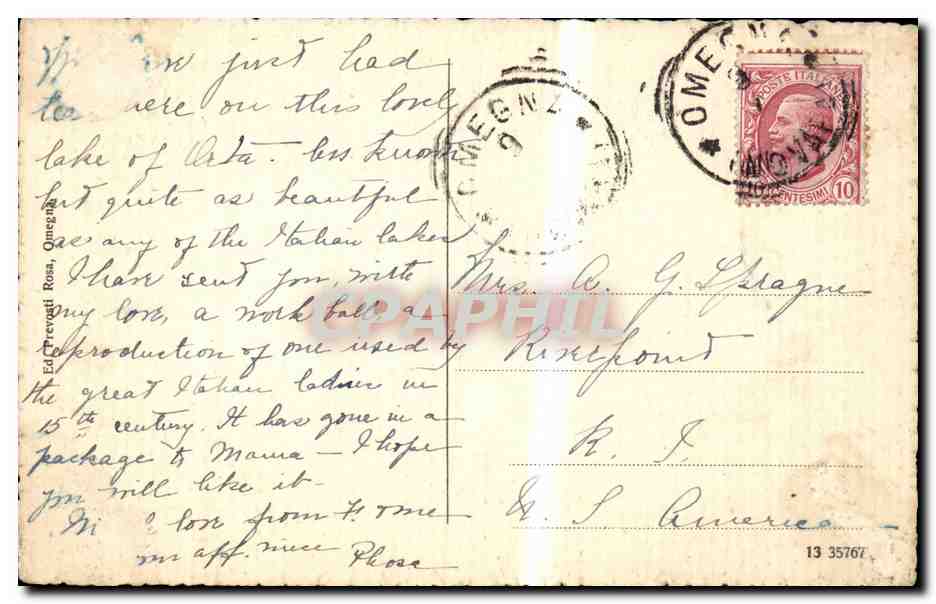 just had
tea here on this lovely
lake of Orta. less known
but quite as beautiful
as any of the Italian lakes
I have sent you, with
my love, a work ball, a
reproduction of one used by
the great Italian ladies in
15th century. It has gone in a
package to Mama — I hope
you will like it —
love from
aff. niece
Mrs. A. G. Sprague
Riverpoint
R. I.
U. S. America
Ed. Prevosti Rosa, Omegna
OMEGNA
OMEGNA
POSTE ITALIANE
CENTESIMI 10
CPAPHIL
13 35767